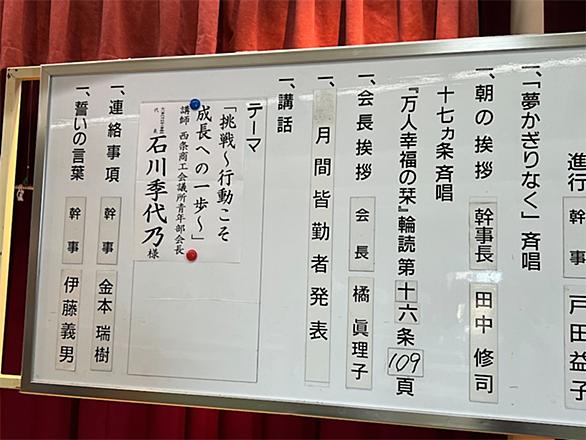 進行 幹事 戸田益子
一、「夢かぎりなく」斉唱
一、朝の挨拶 幹事長 田中修司
十七ヵ条斉唱
『万人幸福の栞』輪読第十六条109頁
一、会長挨拶 会長 橘眞理子
一、月間皆勤者発表
一、講話
テーマ
「挑戦～行動こそ
成長への一歩～」
講師 西条商工会議所青年部会長
石川季代乃様
一、連絡事項 幹事 金本瑞樹
一、誓いの言葉 幹事 伊藤義男